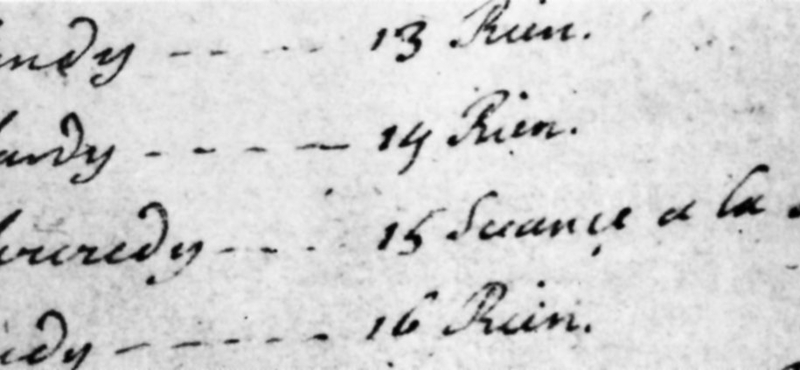 undy ---- 13 Rien.
ardy ----- 14 Rien.
Mercredy ---- 15 Seance a la
idy ------ 16 Rien.